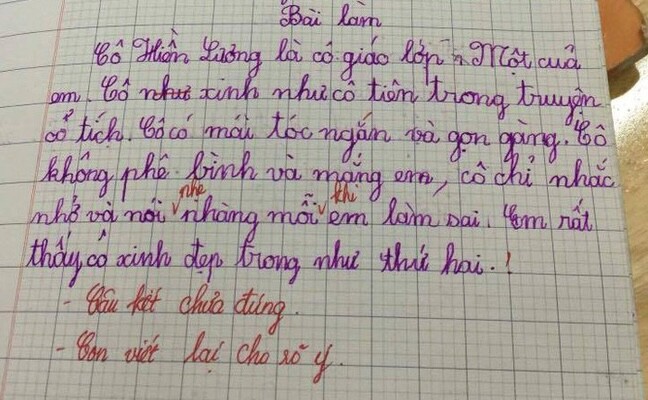 Bài làm
Cô Hiền Lương là cô giáo lớp Một cuả
em. Cô như xinh như cô tiên trong truyện
cổ tích. Cô có mái tóc ngắn và gọn gàng. Cô
không phê bình và mắng em, cô chỉ nhắc
nhẹ khi
nhở và nói nhàng mỗi em làm sai. Em rất
thấy cô xinh đẹp trong như thứ hai.!
- Câu kết chưa đúng.
- Con viết lại cho rõ ý.